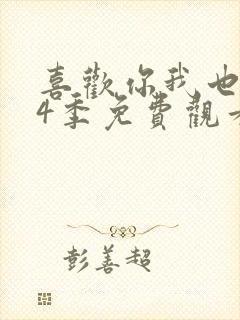 喜歡你我也
4季免費觀
彭善超